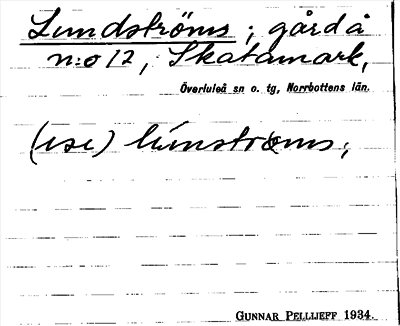 Lundströms; gård å
n:o 12, Skatamark,
Överluleå sn o. tg, Norrbottens län.
(ise) lúnströms;
GUNNAR PELLIJEFF 1934.